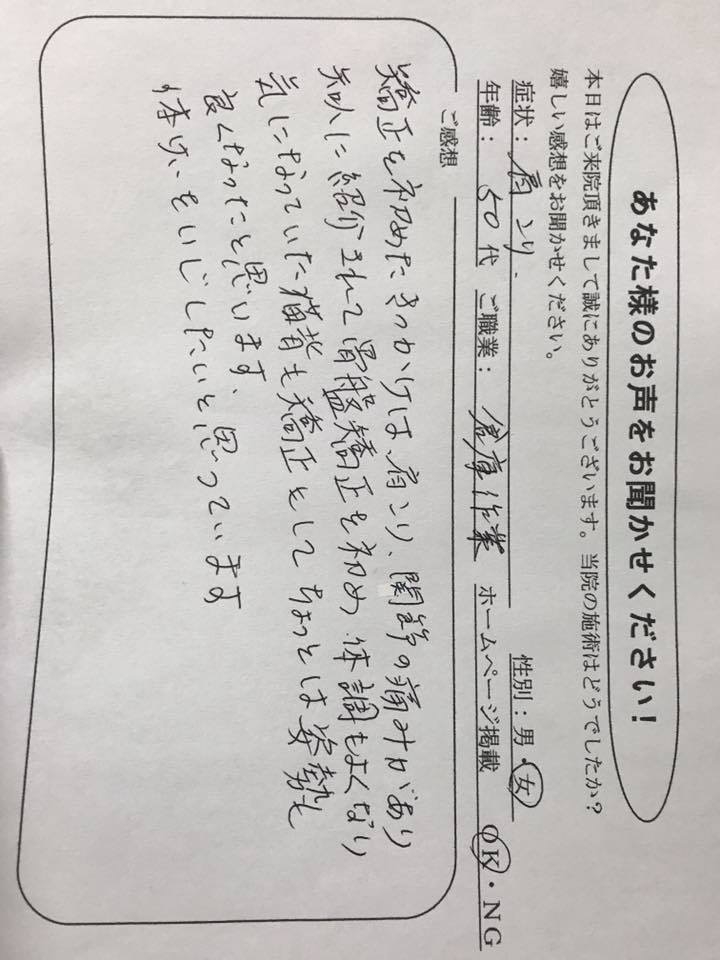 あなた様のお声をお聞かせください！
本日はご来院頂きまして誠にありがとうございます。当院の施術はどうでしたか？
嬉しい感想をお聞かせください。
症状：肩こり. 性別：男・女
年齢：50代 ご職業：倉庫作業 ホームページ掲載 OK・NG
ご感想
矯正を初めたきっかけは、肩こり、関節の痛みがあり
知人に紹介されて骨盤矯正を初め、体調もよくなり
気になっていた猫背も矯正をしてちょっとは姿勢も
良くなったと思います、
体けいをいじしたいと思っています